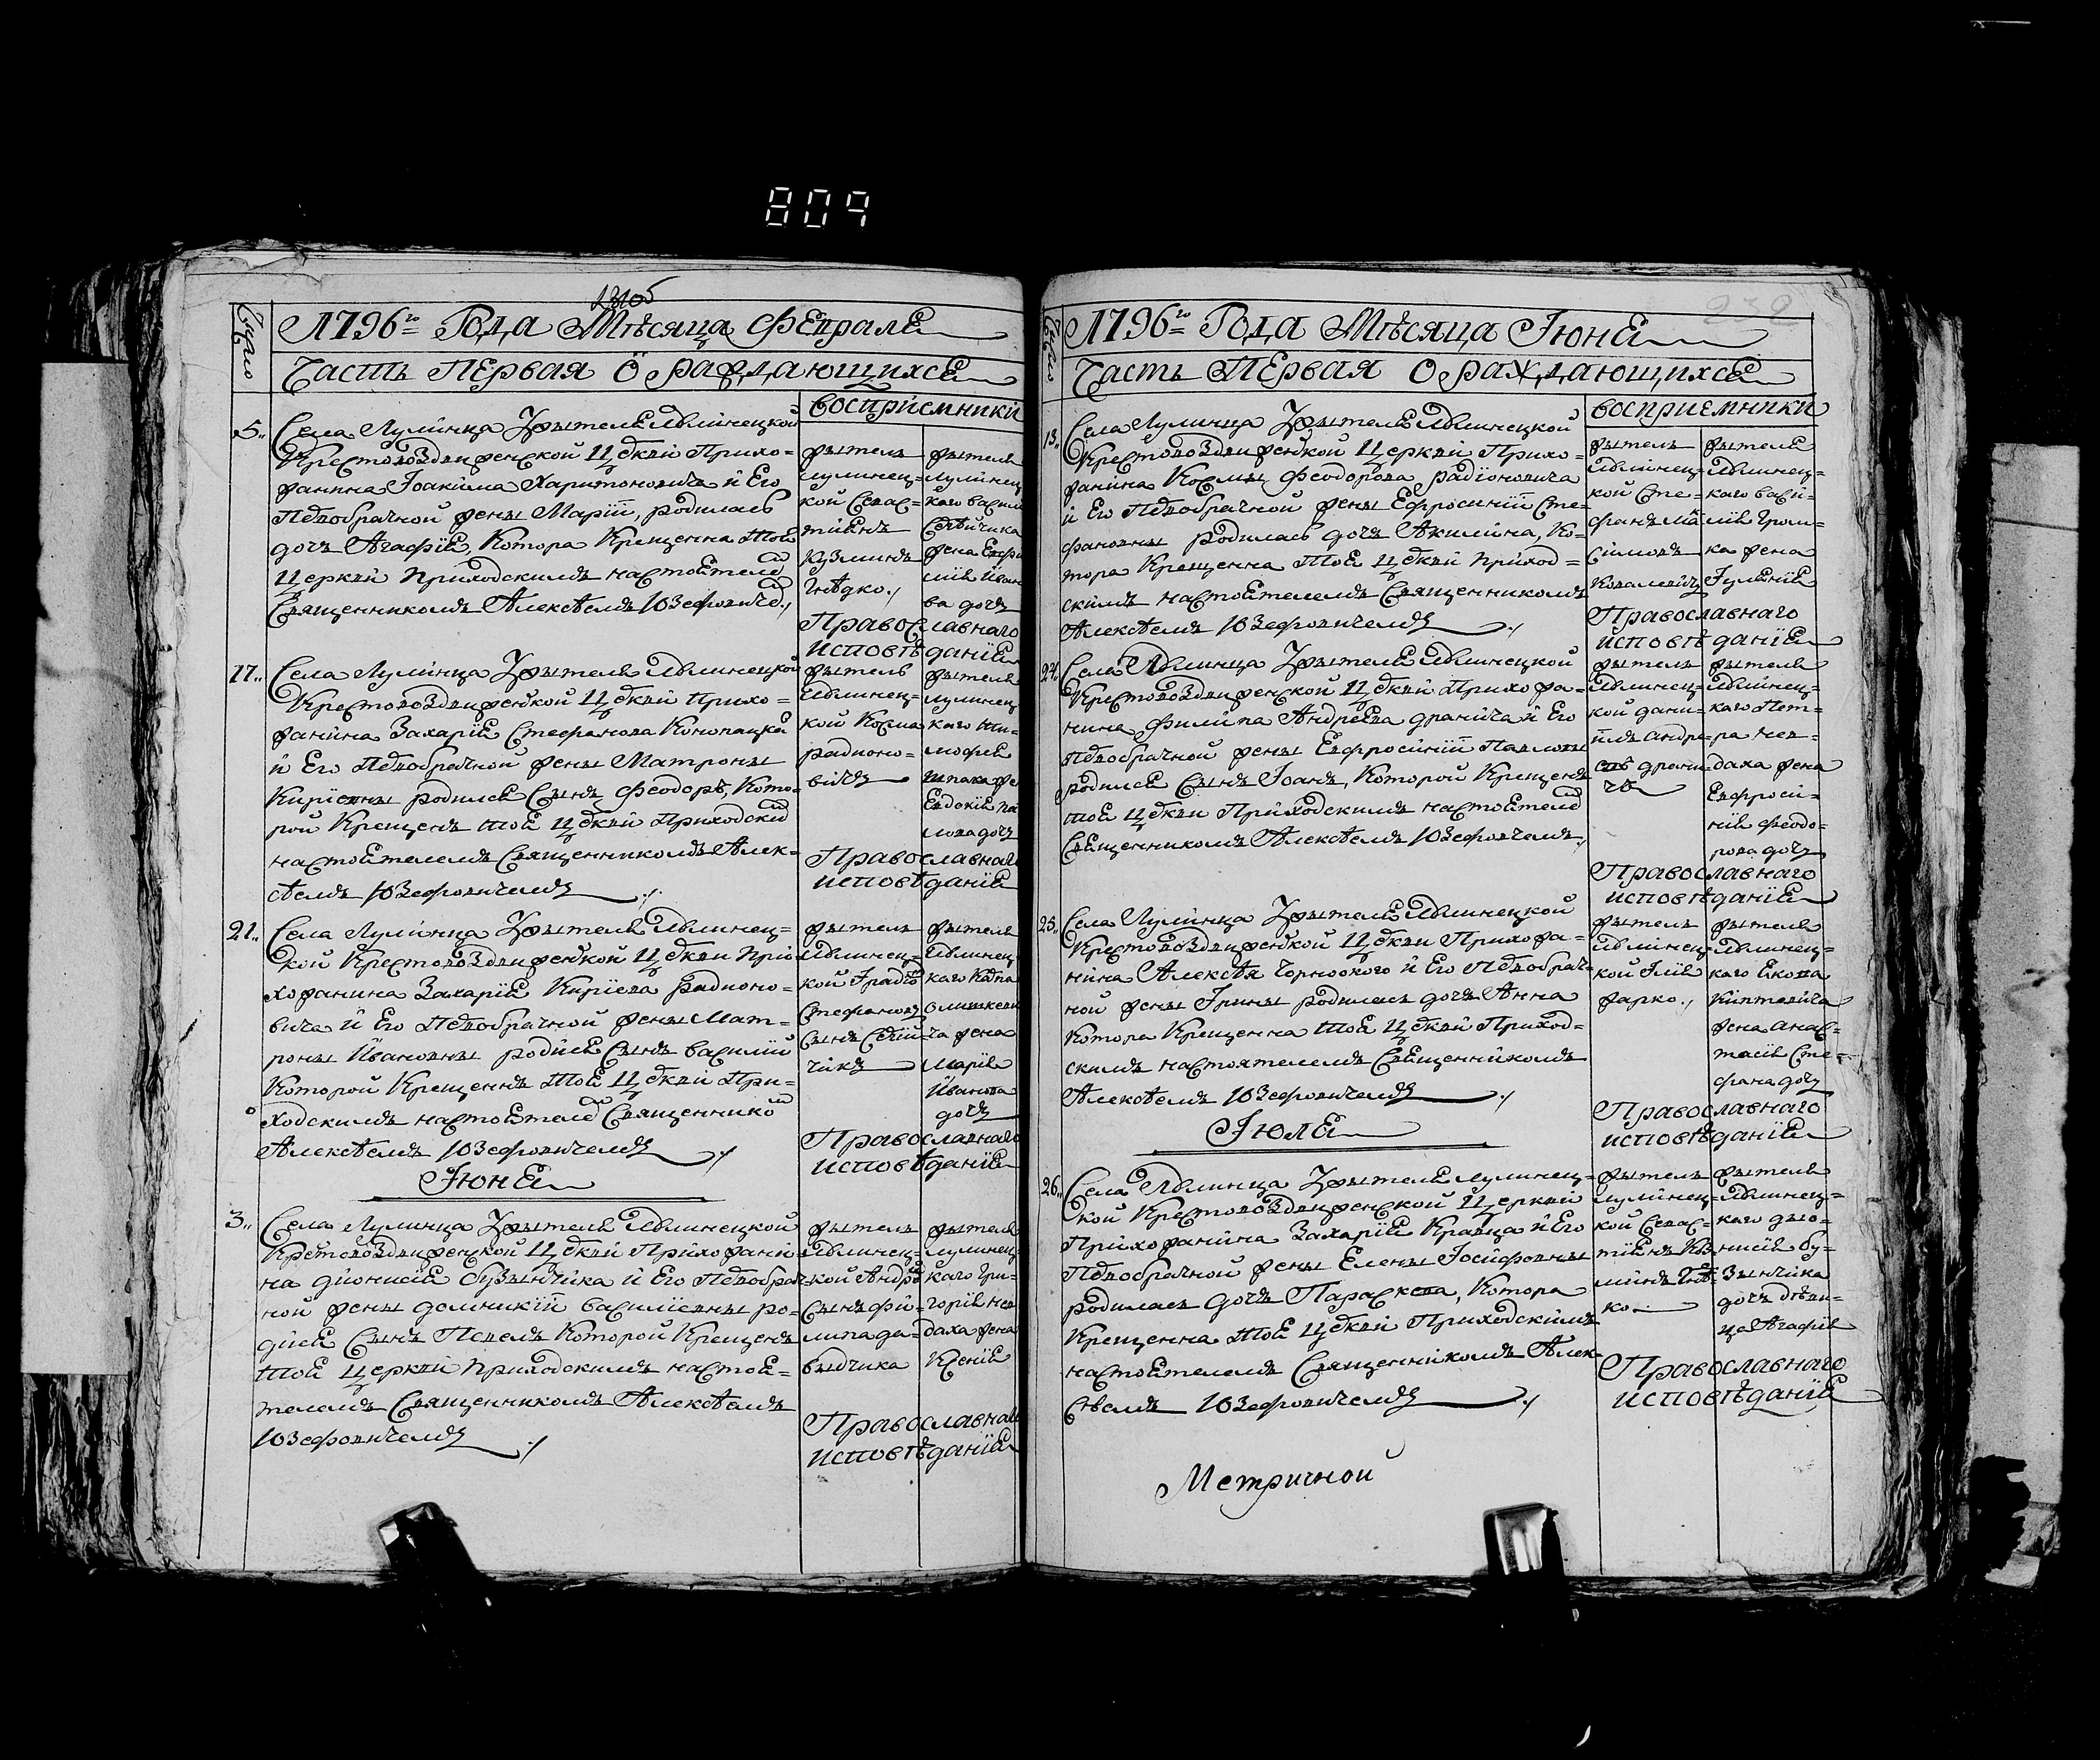 809
231об
1796го Года Мѣсяца Февраля
Число
Часть Первая О раждающихся
восприемники
5.
Села Лулинца Жытеля Яблинецкой
Крестовоздвиженской Цркви Прихо=
жанина Иоакима Харитоновича и Его
Первобрачной жены Марiи, родилась
дочь Агафiя, Котора Крещенна тоя
Церкви приходскимъ настоятеле
Священникомъ Алексѣемъ Юзефовиче
жытель
лулинец=
кой Севас=
тiянъ
Кузминъ
Гнѣдко
жытеля
лулинец
каго васил
жена Евфи
мiя Иван
ва дочь
Православнаго
исповѣданiя
17.
Села Лулинца Жытеля Яблинецкой
Крестовоздвиженской Цркви прихо=
жанина Захарiя Стефанова Конопацка
и Его Первобрачной жены Матроны
Кирiевны родился Сынъ Феодоръ, Кото=
рой Крещенъ тоя Цркви Приходски
настоятелемъ Священникомъ Алек=
сѣемъ Юзефовичемъ
жытель
Яблинец=
кой Косма
радионо=
вичъ
жытеля
лулинец
каго ти=
мофея
шпака же
Евдокiя па
лова дочь
Православнаго
исповѣданiя
21.
Села Лулинца Жытеля Яблинец=
кой Крестовоздвиженской Цркви при
хожанина Захарiя Кирiева радионо=
вича и Его Первобрачной жены Мат=
роны Ивановны родися Сынъ василiй
Которой Крещеннъ тоя Цркви При=
ходскимъ настоятеле Священнико
Алексѣемъ Юзефовичемъ
жытель
Яблинец=
кой
Стефановъ
Сынъ
чикъ
жытеля
Яблинец
каго
ча жена
Марiя
Иванова
дочь
Православнаго
исповѣданiя
Iюня
3.
Села Лулинца Жытеля Яблинецкой
Крестовоздвиженской Цркви Прихожани
на дионисiя бузынчика и Его Первобрач
ной жены домникiи василiевны ро=
дися Сынъ Павелъ Которой Крещенъ
тоя Церкви приходскимъ настоя=
телемъ Священникомъ Алексѣемъ
Юзефовичемъ
жытель
Яблинец=
кой Андрей
Сынъ фи=
липа да=
выдчика
жытеля
лулинец
каго гри=
горiя нев
даха жена
Ксенiя
Православнаго
исповѣданiя
232
1796го Года Мѣсяца Iюня
Число
Часть Первая О раждающихся
восприемники
13.
Села Лулинца Жытеля Яблинецкой
Крестовоздвиженской Церкви Прихо=
жанина Космы Феодорова радiоновича
и Его Первобрачной жены Ефросинiи Сте=
фановны родилась дочь Акилина, Ко=
тора Крещенна тоя Цркви приход=
скимъ настоятелемъ Священникомъ
Алексѣемъ Юзефовичемъ
жытель
Яблинец=
кой Сте=
фанъ Ма
симовъ
Ковалевичъ
жытеля
Яблинец=
каго васи=
лiя гром=
ка жена
Iулiянiя
Православнаго
исповѣданiя
24.
Села Яблинца Жытеля Яблинецкой
Крестовоздвиженской Цркви Прихожа=
нина филипа Андреева дранича и Его
первобрачной жены Евфросинiи Павловы
родился Сынъ Иоанъ, Которой Крещенъ
тоя Цркви Приходскимъ настоятеле
Священникомъ Алексѣемъ Юзефовичемъ
жытель
Яблинец=
кой дани=
илъ андре=
драни
чъ
жытеля
Яблинец=
каго Пет=
ра нев=
даха жена
Евфроси=
нiя феодо=
рова дочь
Православнаго
исповѣданiя
25.
Села Лулинца Жытеля Яблинецкой
Крестовоздвиженской Цркви Прихожа=
нина Алексѣя Чорноокого и Его Первобрач=
ной жены Ирины родилась дочь Анна
Котора Крещенна тоя Цркви Приход=
скимъ настоятелемъ Священникомъ
Алексѣемъ Юзефовичемъ
жытель
Яблинец=
кой Илiя
жарко
жытеля
Яблинец=
каго Якова
Киптевича
жена анас=
тасiя Сте=
фана дочь
Православнаго
исповѣданiя
Iюля
26.
Села Яблинца Жытеля Лулинец=
кой Крестовоздвиженской Церкви
Прихожанина Захарiя Кравца и Его
Первобрачной жены Елены Iосифовны
родилась дочь Параскева, Котора
Крещенна тоя Цркви Приходскимъ
настоятелемъ Священникомъ Алек
сѣемъ Юзефовичемъ
жытель
лулинец=
кой Севас=
тiянъ Куз
минъ Гнѣ
ко
жытеля
Яблинец=
каго дио=
нисiя бу=
зынчика
дочь дѣви=
ца Агафiя
Православнаго
исповѣданiя
Метричной